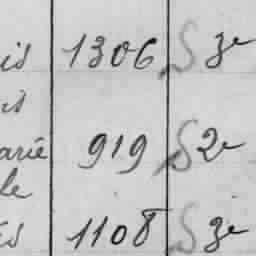 is 1306 S 3e
is
arié 919 S 2e
le
és 1108 S 3e